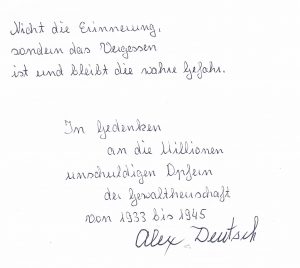 Nicht die Erinnerung,
sondern das Vergessen
ist und bleibt die wahre Gefahr.
In Gedenken
an die Millionen
unschuldigen Opfern
der Gewaltherrschaft
von 1933 bis 1945
Alex Deutsch